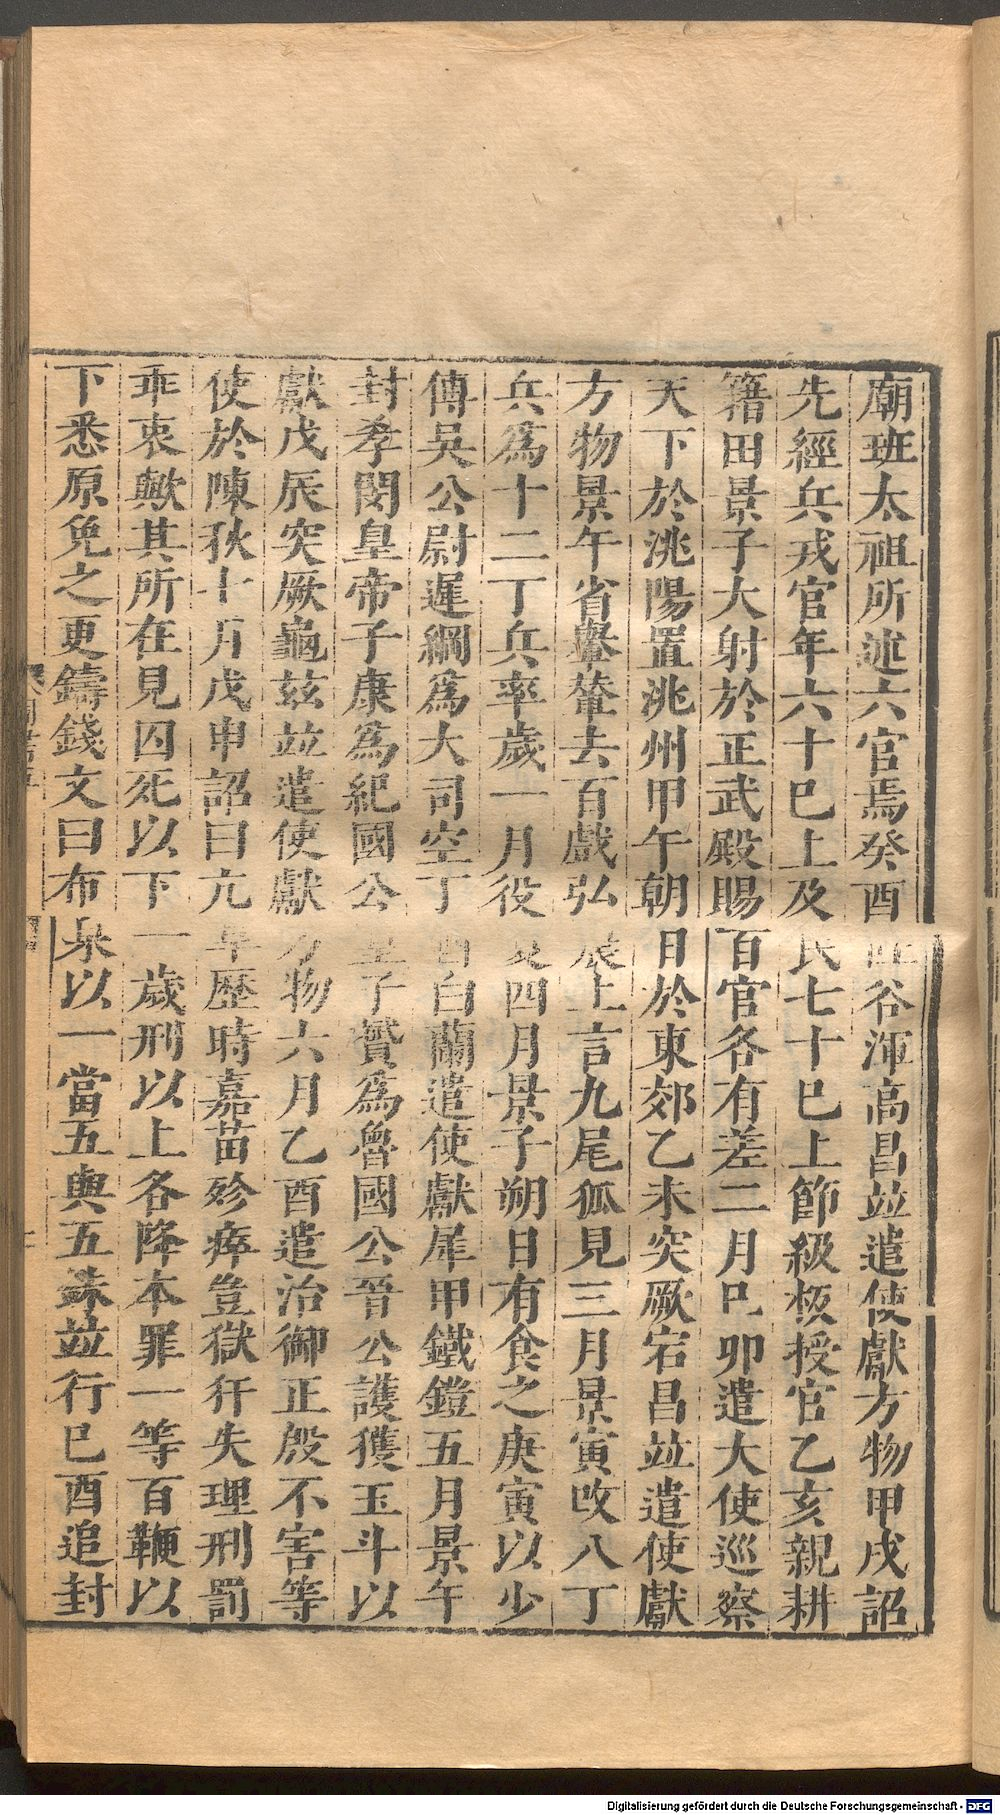 廟班太祖所述六官焉癸酉吐谷渾高昌竝遣使獻方物甲戌詔
先經兵戎官年六十巳上及民七十巳上節級板授官乙亥親耕
籍田景子大射於正武殿賜百官各有差二月巳卯遣大使巡察
天下於洮陽置洮州甲午朝日於東郊乙未突厥宕昌竝遣使獻
方物景午省轝輦去百戲弘農上言九尾狐見三月景寅改八丁
兵爲十二丁兵率歲一月役夏四月景子朔日有食之庚寅以少
傅吳公尉遲綱爲大司空丁酉白蘭遣使獻犀甲鐵鎧五月景午
封孝閔皇帝子康爲紀國公皇子贇爲魯國公晉公護獲玉斗以
獻戊辰突厥龜玆竝遣使獻方物六月乙酉遣治御正殷不害等
使於陳秋七月戊申詔曰亢旱歷時嘉苗殄瘁豈獄犴失理刑罰
乖衷歟其所在見囚死以下一歲刑以上各降本罪一等百鞭以
下悉原免之更鑄錢文曰布泉以一當五與五銖竝行巳酉追封
Digitalisierung gefördert durch die Deutsche Forschungsgemeinschaft - DFG